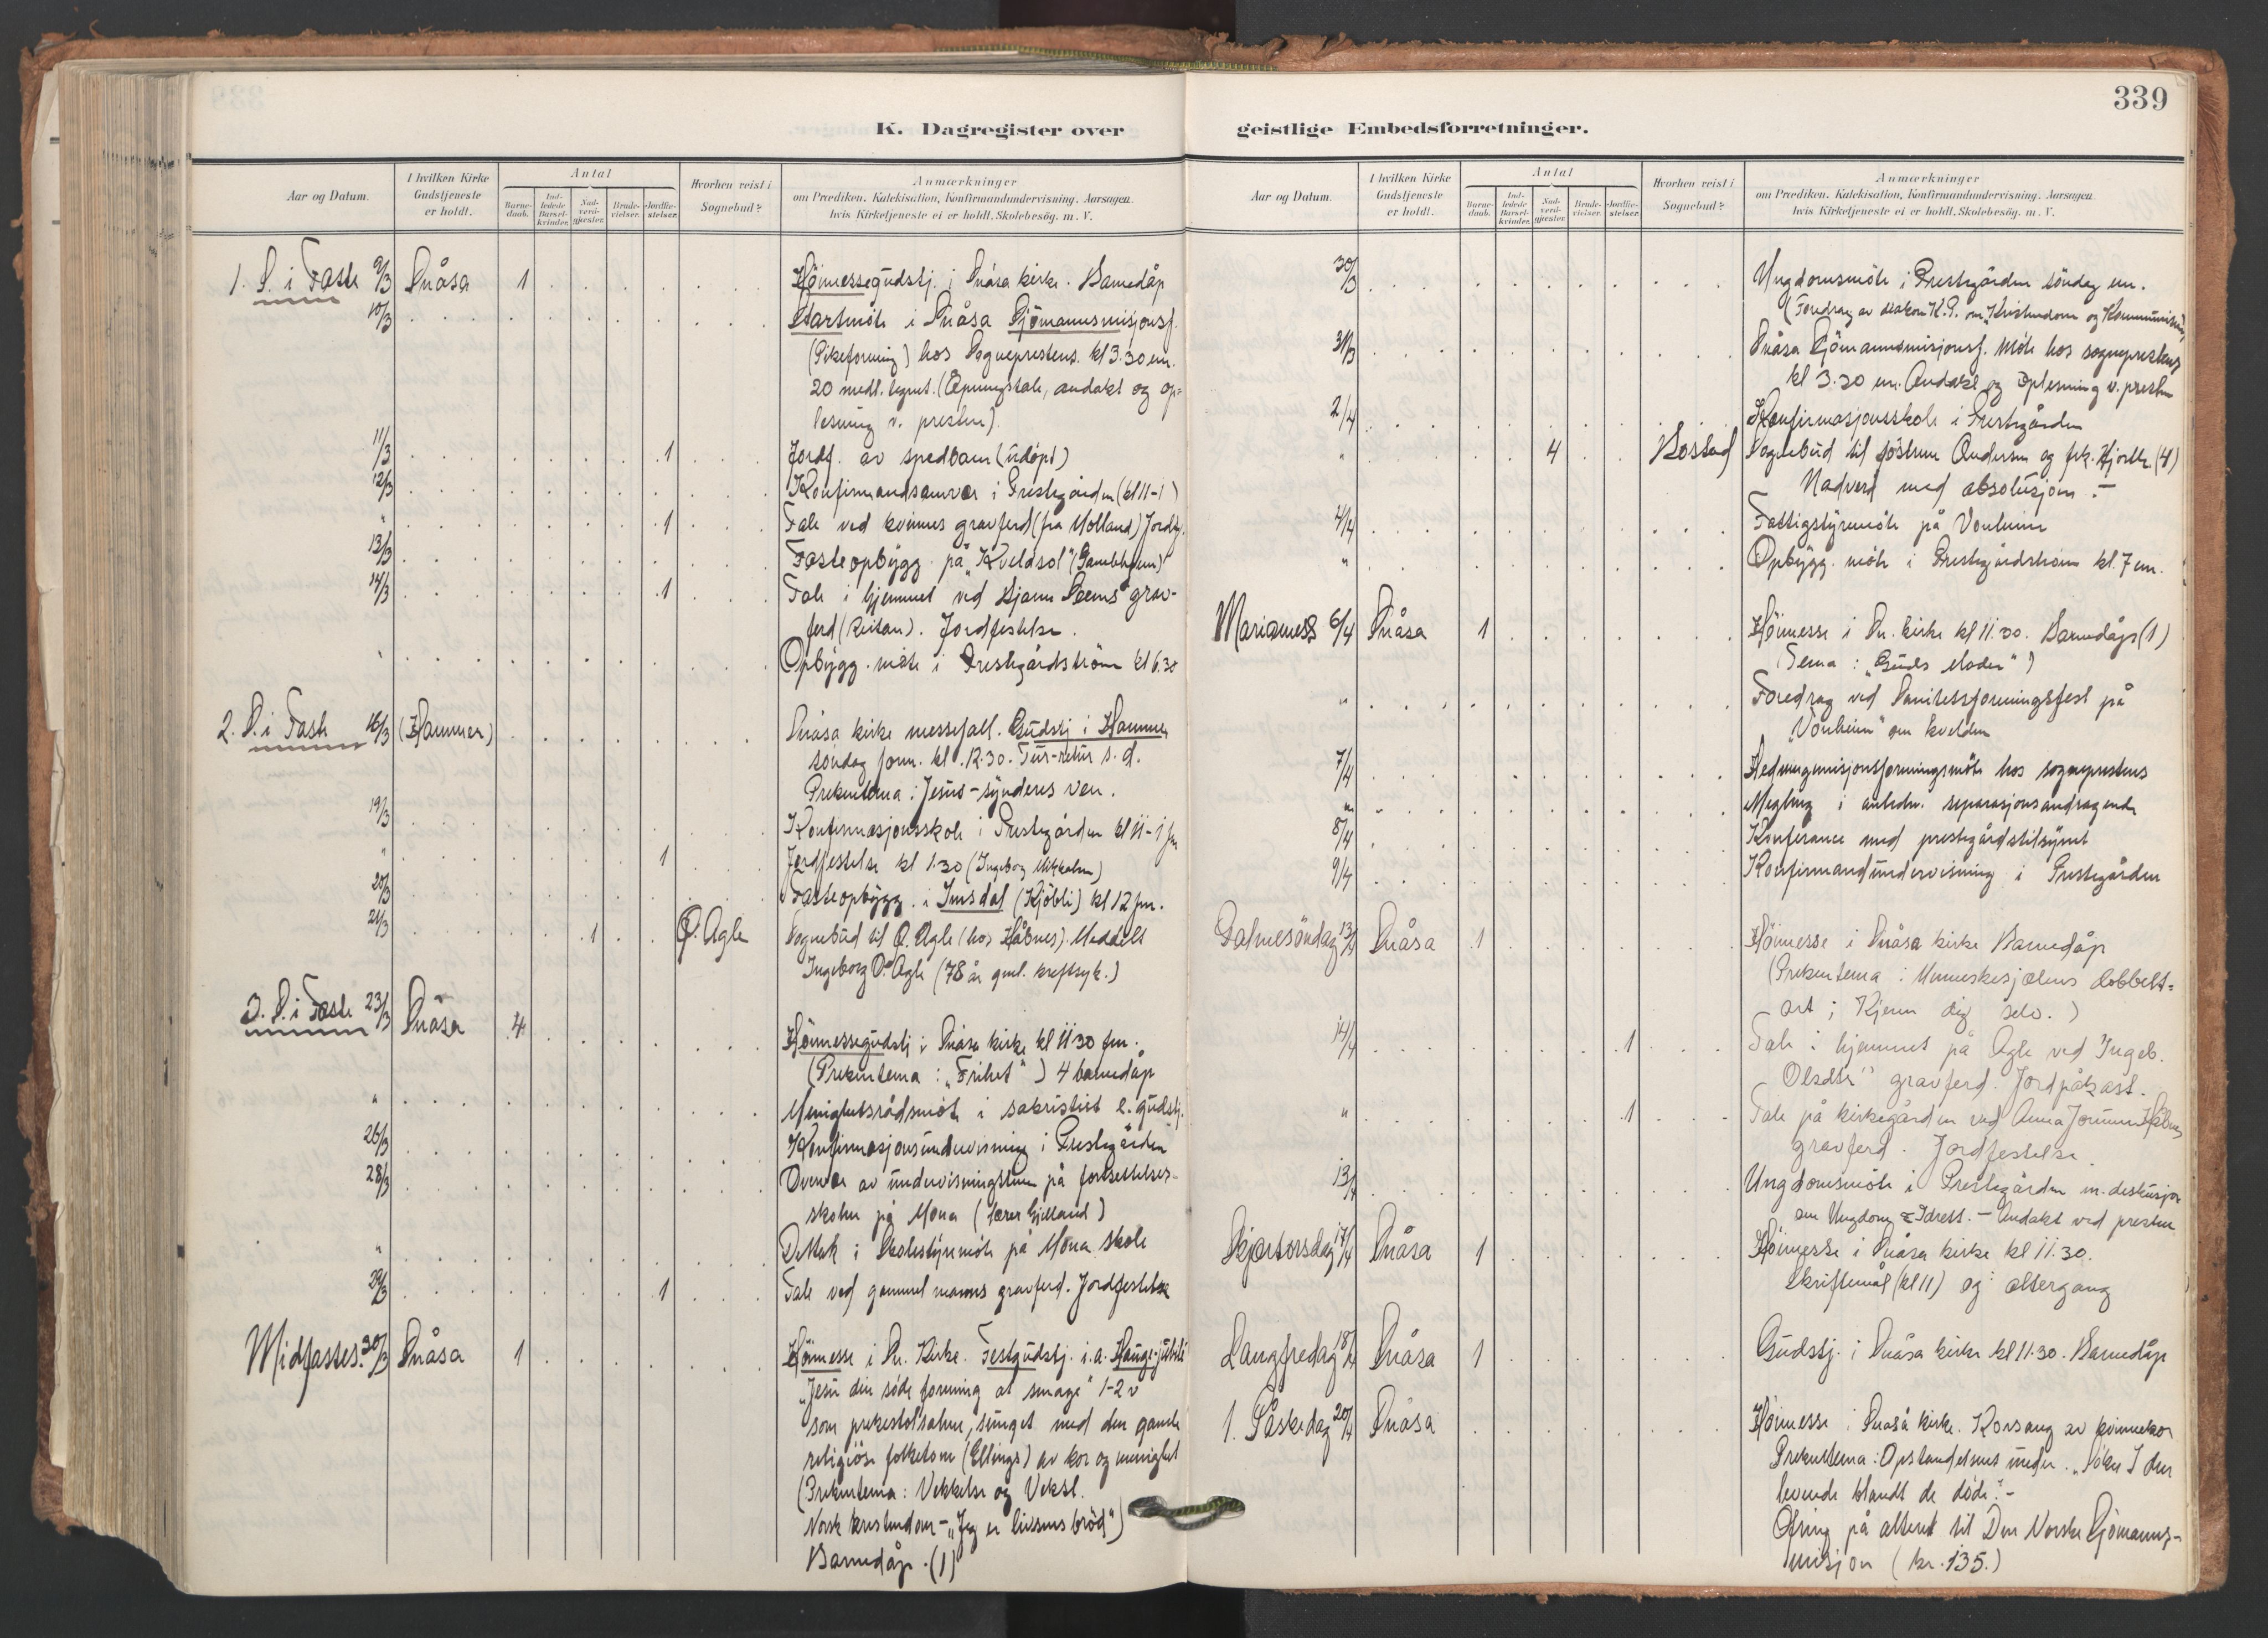 339
K. Dagregister over
geistlige Embedsforretninger.
Aar og Datum.
I hvilken Kirke
Gudstjeneste
er holdt.
Antal
Barne-
daab.
Ind-
ledede
Barsel-
kvinder.
Nad-
verd-
gjester.
Brude-
vielser.
Jordfæ-
stelser.
Hvorhen reist i
Sognebud?
Anmærkninger
om Prædiken. Katekisation. Konfirmandundervisning. Aarsagen
hvis Kirketjeneste ei er holdt. Skolebesög. m. V.
1. S. i Faste 9/3 Snåsa 1 Höimessegudstj. i Snåsa kirke. Barnedåp
10/3 Startmöte i Snåsa Sjömannsmisjonsf.
(Pikeforening) hos Sogneprestens kl 3.30 em.
20 medl. tegnet. (Åpningstale, andakt og op-
lesning v. presten)
11/3 1 Jordf. av spedbarn (udöpt)
12/3 Konfirmandsamvær i Prestegården (kl 11-1)
" 1 Tale ved kvinnes gravferd (fra Holland) Jordf.
13/3 Fasteopbygg. på "Kveldsol" (Gamleheim)
14/3 1 Tale i hjemmet ved Bjarne Seems grav-
ferd (Reitan). Jordfestelse.
" Opbygg. möte i Prestegårdström kl 6.30
2. S. i Faste 16/3 (Hammer) Snåsa kirke messefall. Gudstj i Hammer
söndag form. kl. 12.30. Tur-retur s. d.
Prekentema: Jesus-synderes ven.
19/3 Konfirmasjonsskole i Prestegården kl 11-1 fm
" 1 Jordfestelse kl 1.30 (Ingeborg Mikkelsen)
20/3 Fasteopbygg. i Imsdal (Kjöbli) kl 12 fm.
21/3 1 O. Agle Sognebud til O. Agle (hos Håbnes). Meddelt
Ingeborg O. Agle (78 år gml. kreftsyk.)
3. S. i Faste 23/3 Snåsa 4 Höimessegudstj i Snåsa kirke kl 11 30 fm.
(Prekentema: "Frihet") 4 barnedåp
" Menighetsrådsmöte i sakristiet e. gudstj.
26/3 Konfirmasjonsundervisning i Prestegården
28/3 Overvær av undervisningstime på fortsettelses-
skolen på Mona (lærer Gjelland)
" Deltok i Skolestyremöte på Mona skole
29/3 1 Tale ved gammel manns gravferd. Jordfestelse
Midfastes. 30/3 Snåsa 1 Höimesse i Sn. Kirke. Festgudstj. i. a. Hauge-jubile
"Jesu din söde forening at smage" 1-2 v
som prekestolsalme, sunget med den gamle
religiöse folketone (Ellings) av kor og menighet
(Prekentema: Vekkelse og Vekst.
Norsk kristendom - "Jeg er livsens bröd")
Barnedåp. (1)
Aar og Datum.
I hvilken Kirke
Gudstjeneste
er holdt.
Antal
Barne-
daab.
Ind-
ledede
Barsel-
kvinder.
Nad-
verd-
gjester.
Brude-
vielser.
Jordfæ-
stelser.
Hvorhen reist i
Sognebud?
Anmærkninger
om Prædiken. Katekisation. Konfirmandundervisning. Aarsagen
hvis Kirketjeneste ei er holdt. Skolebesög. m. V.
30/3 Ungdomsmöte i Prestegården söndag em.
(Foredrag av diakon K.P. om "Kristendom og Kommunisme")
31/3 Snåsa Sjömannsmisjonsf. Möte hos sogneprestens
kl 3.30 em. Andakt og oplesning v. presten
2/4 Konfirmasjonsskole i Prestegården
" 4 Bostad Sognebud til söstrene Andersen og frk. Hjorth (4)
Nadverd med absolusjon.-
4/4 Fattigstyremöte på Vonheim
" Opbygg. möte i Prestegårdström kl. 7 em.
Mariamess 6/4 Snåsa 1 Höimesse i Sn. kirke kl 11.30. Barnedåp (1)
(Tema: "Guds Moder")
" Foredrag ved Sanitetsforeningsfest på
"Vonheim" om kvelden
7/4 Hedningemisjonsforeningsmöte hos sogneprestens
" Megling i anledn. separasjonsandragende
8/4 Konferance med prestegårdstilsynet
9/4 Konfirmandundervisning i Prestegården
Palmesöndag 13/4 Snåsa 1 Höimesse i Snåsa kirke Barnedåp
(Prekentema: Menneskesjælens dobbelt-
art; Kjenn dig selv.)
14/4 1 Tale i hjemmet på Agle ved Ingeb.
Olsdtr's gravferd. Jordpåkast.
" 1 Tale på kirkegården ved Anna Jorunn Håbnes
gravferd. Jordfestelse.
13/4 Ungdomsmöte i Prestegården m. diskusjon
om Ungdom & Idrett. - Andakt ved presten
Skjærtorsdag 17/4 Snåsa 1 Höimesse i Snåsa kirke kl 11.30.
Skriftemål (kl 11) og altergang
Langfredag 18/4 Snåsa 1 Gudstj. i Snåsa kirke kl 11.30. Barnedåp
1. Påskedag 20/4 Snåsa Höimesse i Snåsa kirke. Korsang av kvinnekor
Prekentema: Opstandelsens under. "Söker I den
levende blandt de döde?"-
Ofring på alteret til Den Norske Sjömanns-
misjon (kr. 135.)